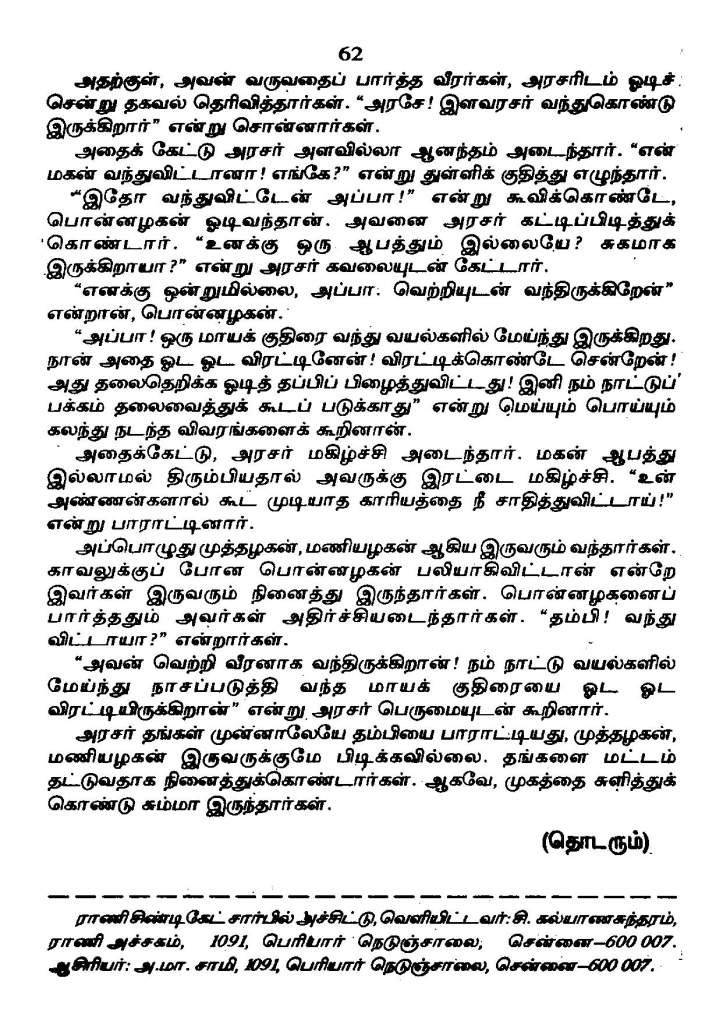 62
அதற்குள், அவன் வருவதைப் பார்த்த வீரர்கள், அரசரிடம் ஓடிச்
சென்று தகவல் தெரிவித்தார்கள். “அரசே! இளவரசர் வந்துகொண்டு
இருக்கிறார்” என்று சொன்னார்கள்.
அதைக் கேட்டு அரசர் அளவில்லா ஆனந்தம் அடைந்தார். “என்
மகன் வந்துவிட்டானா! எங்கே?” என்று துள்ளிக் குதித்து எழுந்தார்.
“இதோ வந்துவிட்டேன் அப்பா!” என்று கூவிக்கொண்டே,
பொன்னழகன் ஓடிவந்தான். அவனை அரசர் கட்டிப்பிடித்துக்
கொண்டார். “உனக்கு ஒரு ஆபத்தும் இல்லையே? சுகமாக
இருக்கிறாயா?” என்று அரசர் கவலையுடன் கேட்டார்.
“எனக்கு ஒன்றுமில்லை, அப்பா. வெற்றியுடன் வந்திருக்கிறேன்”
என்றான், பொன்னழகன்.
“அப்பா! ஒரு மாயக் குதிரை வந்து வயல்களில் மேய்ந்து இருக்கிறது.
நான் அதை ஓட ஓட விரட்டினேன்! விரட்டிக்கொண்டே சென்றேன்!
அது தலைதெறிக்க ஓடித் தப்பிப் பிழைத்துவிட்டது! இனி நம் நாட்டுப்
பக்கம் தலைவைத்துக் கூடப் படுக்காது” என்று மெய்யும் பொய்யும்
கலந்து நடந்த விவரங்களைக் கூறினான்.
அதைக்கேட்டு, அரசர் மகிழ்ச்சி அடைந்தார். மகன் ஆபத்து
இல்லாமல் திரும்பியதால் அவருக்கு இரட்டை மகிழ்ச்சி. “உன்
அண்ணன்களால் கூட முடியாத காரியத்தை நீ சாதித்துவிட்டாய்!”
என்று பாராட்டினார்.
அப்பொழுது முத்தழகன், மணியழகன் ஆகிய இருவரும் வந்தார்கள்.
காவலுக்குப் போன பொன்னழகன் பலியாகிவிட்டான் என்றே
இவர்கள் இருவரும் நினைத்து இருந்தார்கள். பொன்னழகனைப்
பார்த்ததும் அவர்கள் அதிர்ச்சியடைந்தார்கள். “தம்பி! வந்து
விட்டாயா?” என்றார்கள்.
“அவன் வெற்றி வீரனாக வந்திருக்கிறான்! நம் நாட்டு வயல்களில்
மேய்ந்து நாசப்படுத்தி வந்த மாயக் குதிரையை ஓட ஓட
விரட்டியிருக்கிறான்” என்று அரசர் பெருமையுடன் கூறினார்.
அரசர் தங்கள் முன்னாலேயே தம்பியை பாராட்டியது, முத்தழகன்,
மணியழகன் இருவருக்குமே பிடிக்கவில்லை. தங்களை மட்டம்
தட்டுவதாக நினைத்துக்கொண்டார்கள். ஆகவே, முகத்தை சுளித்துக்
கொண்டு சும்மா இருந்தார்கள்.
(தொடரும்)
ராணி சிண்டிகேட் சார்பில் அச்சிட்டு, வெளியிட்டவர்: சி. கல்யாணசுந்தரம்,
ராணி அச்சகம், 1091, பெரியார் நெடுஞ்சாலை, சென்னை–600 007.
ஆசிரியர்: அ.மா. சாமி, 1091, பெரியார் நெடுஞ்சாலை, சென்னை–600 007.